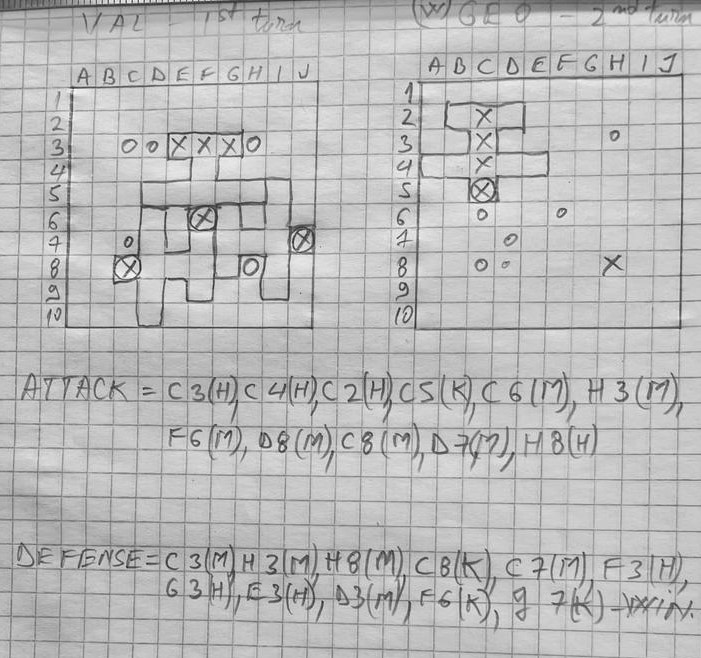 VAL - 1st turn
(W) GEO - 2nd turn
A B C D E F G H I J
A B C D E F G H I J
1
2
3 O O X X X O
4
5
6 X
7 O X
8 X O
9
10
1
2 X
3 X O
4 X
5 X
6 O O
7 O
8 O O X
9
10
ATTACK = C3(H), C4(H), C2(H), C5(K), C6(M), H3(M),
F6(M), D8(M), C8(M), D7(M), H8(H)
DEFENSE = C3(M) H3(M), H8(M), C8(K), C7(M), F3(H),
G3(H), E3(H), D3(M), F6(K), J7(K) - Win.